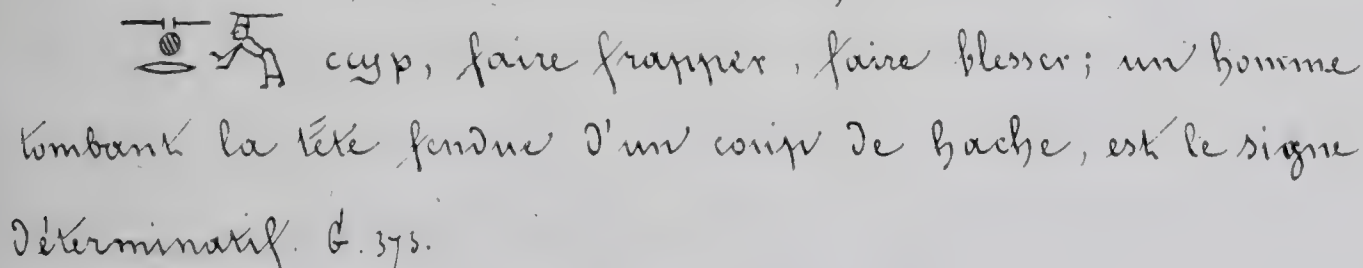 ⲥϣⲣ, faire frapper, faire blesser; un homme
tombant la tête fendue d'un coup de hache, est le signe
déterminatif. G. 373.